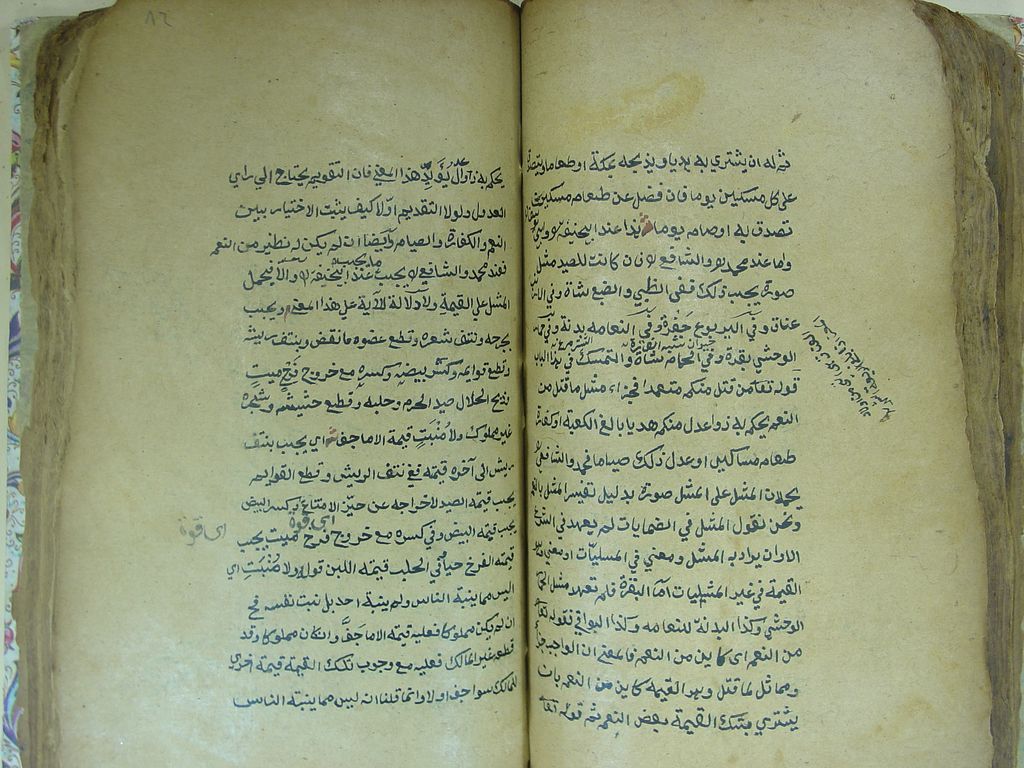 ثم له ان يشتري به هديا ويذبحه بمكة او طعاما ويتصدق
على كل مسكين يوما فان فضل عن طعام مسكين
تصدق به او صام يوما هذا عند ابيحنيفة وابي يوسف
واما عند محمد والشافعي ان كانت للصيد مثل
صورة يجب ذلك ففي الظبي والضبع شاة وفي الارنب
عناق وفي اليربوع جفرة وفي النعامة بدنة وفي حمار
الوحشي بقرة وفي الحمامة شاة والتمسك في هذا الباب
قوله تعا من قتل منكم متعمدا فجزاء مثل ما قتل من
النعم يحكم به ذوا عدل منكم هديا بالغ الكعبة او كفارة
طعام مساكين او عدل ذلك صياما فمحمد والشافعي
يحملان المثل على المثل صورة بدليل تفسير المثل بالنعم
ونحن نقول المثل في الضمانات لم يعهد في الشرع
الا وان يراد به المثل ومعنى في المثليات او معنى وهو
القيمة في غير المثليات اما البقرة فلم تعهد مثل الحمار
الوحشي وكذا البدنة للنعامة وكذا البواقي فقوله تعا
من النعم اى كاين من النعم فالمعنى ان الواجب جزاء
ومماثل لما قتل وهو القيمة كاين من النعم بان
يشتري بتلك القيمة بعض النعم ثم قوله تعا
٨٦
يحكم به ذوا عدل يؤيد هذا المعنى فان التقويم يحتاج الى راي
العدول ولولا التقديم اولا كيف يثبت الاختيار بين
النعم والكفارة والصيام وايضا ان لم يكن له نظير من النعم
فعند محمد والشافعي يجب ما يجب عند ابيحنيفة والا يحمل
المثل على القيمة ولا دلالة للآية على هذا المعنى ويجب
بجرحه ونتف شعره وقطع عضوه ما نقص وبنتف ريشه
وقطع قوايمه وكسر بيضه وكسره مع خروج فرخ ميت
وذبح الحلال صيد الحرم وحلبه وقطع حشيشه وشجره
غير مملوك ولا منبت قيمة الا ما جف اي يجب بنتف
ريش الى آخره قيمته ففي نتف الريش وقطع القوايم
يجب قيمة الصيد لاخراجه عن حيز الامتناع وبكسر البيض
اى قوة
يجب قيمة البيض وفي كسره مع خروج فرخ ميت يجب
قيمة الفرخ حيا وفي الحلب قيمة اللبن قوله ولا منبت اي
اليس مما ينبته الناس ولم ينبته احد بل نبت نفسه فح
ان لم يكن مملوكا فعليه قيمة الا ما جف وان كان مملوكا وقد
قطعه غير المالك فعليه مع وجوب تلك القيمة قيمة اخرى
للمالك سوا جف اولا وانما قلنا انه ليس مما ينبته الناس